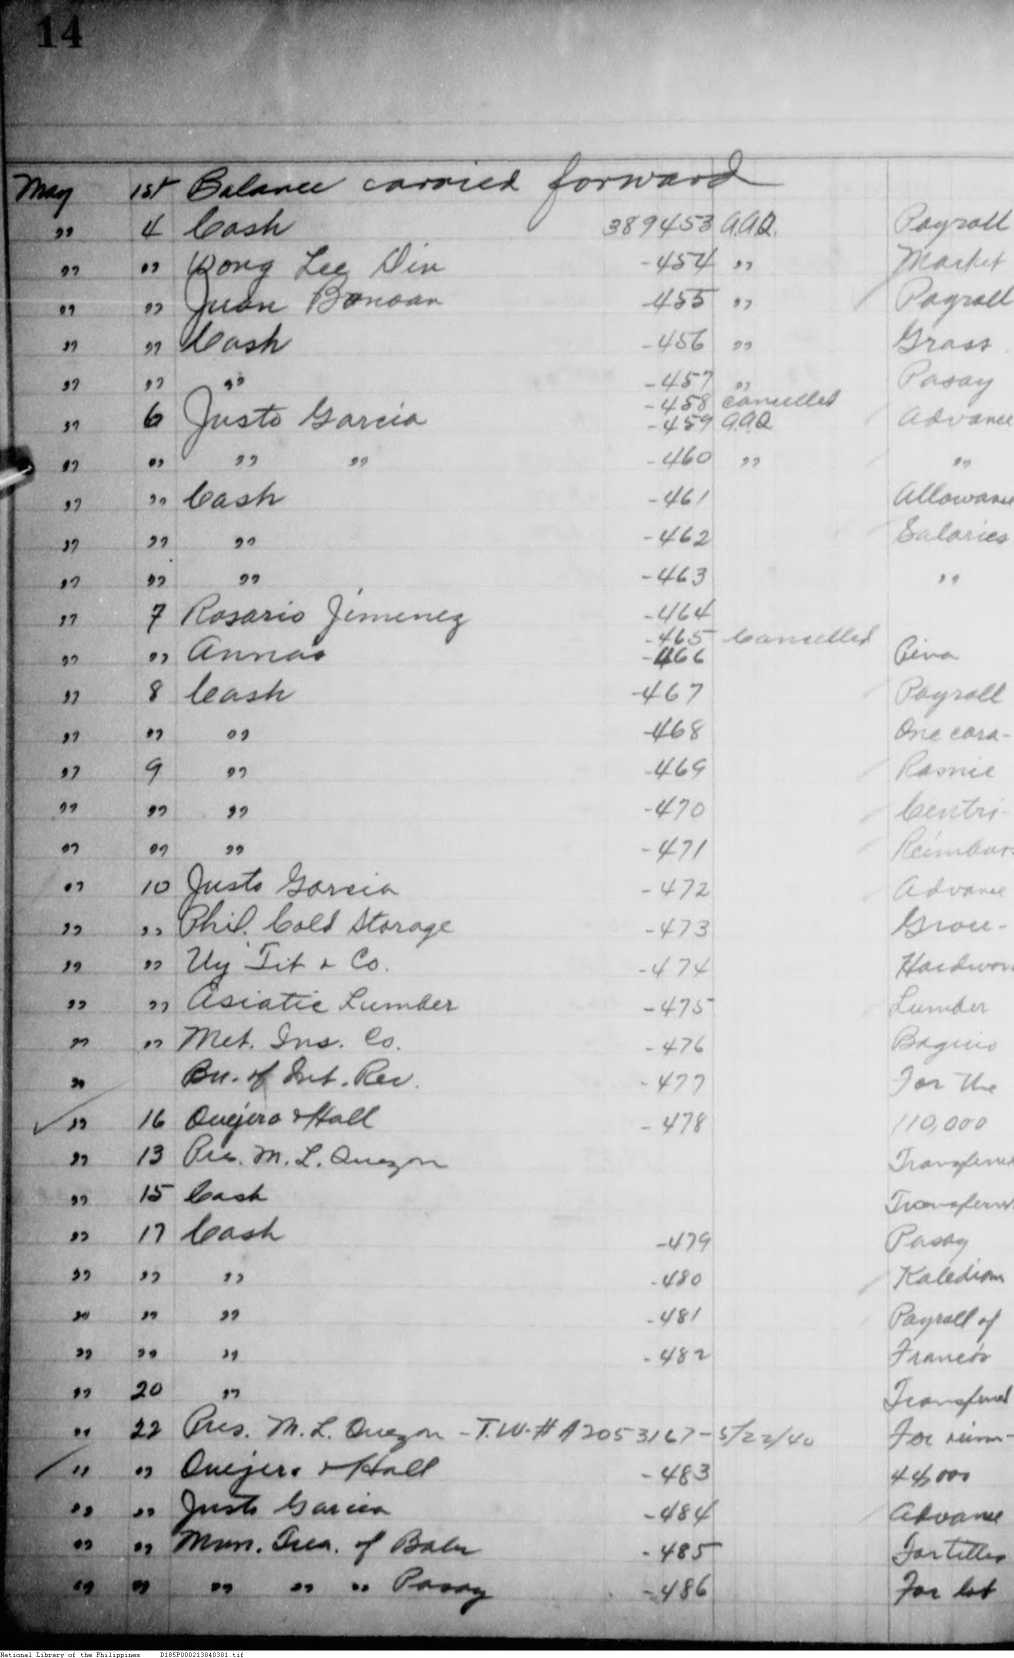 14
May 1st Balance carried forward
" 4 Cash 389453 A.A.Q. Payroll
" " Wong Lee Din -454 " Market
" " Juan Bonoan -455 " Payroll
" " Cash -456 " Grass
" " " -457 " Pasay
-458 cancelled
" 6 Justo Garcia -459 A.A.Q. Advance
" " " " -460 " "
" " Cash -461 Allowance
" " " -462 Salaries
" " " -463 "
" 7 Rosario Jimenez -464
-465 Cancelled
" " Annas -466
" 8 Cash -467 Payroll
" " " -468 One cara-
" 9 " -469
" " " -470 Centri-
" " " -471 Reimburs
" 10 Justo Garcia -472 Advance
" " Phil. Cold Storage -473 Groce-
" " Uy Tit & Co. -474 Hardware
" " Asiatic Lumber -475 Lumber
" " Met. Ins. Co. -476 Baguio
" Bu. of Int. Rev. -477 For the
" 16 Quejero & Hall -478 110,000
" 13 Pres. M. L. Quezon Transferred
" 15 Cash Transferred
" 17 Cash -479 Pasay
" " " -480
" " " -481 Payroll of
" " " -482 Francis
" 20 " Transferred
" 22 Pres. M. L. Quezon - T.W.# A2053167-5/22/40 For
" " Quejero & Hall -483 44,000
" " Justo Garcia -484 Advance
" " Mun. Trea. of Baler -485 For titles
" " " " " Pasay -486 For lot
National Library of the Philippines D185P000213040301.tif